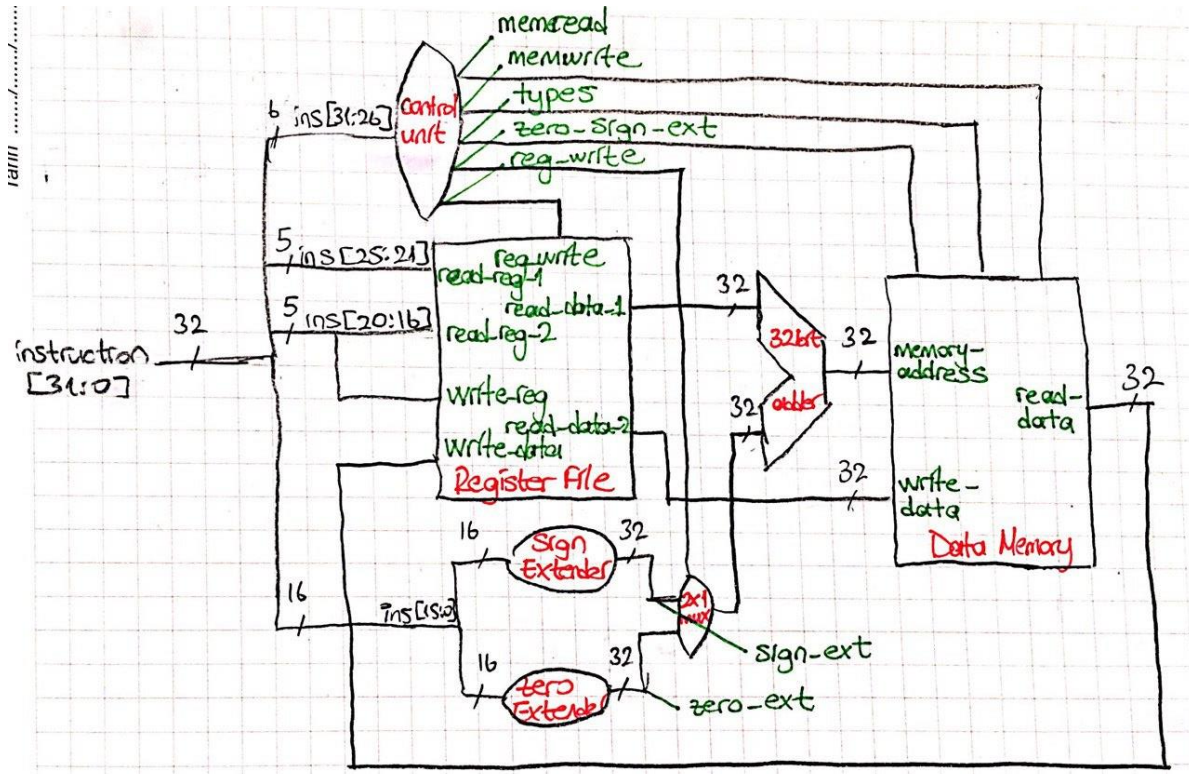 Tarih ......./......./.......
memread
memwrite
types
zero_sign_ext
reg_write
control
unit
6 ins[31:26]
5 ins[25:21]
5 ins[20:16]
32
instruction
[31:0]
reg write
read-reg-1
read-data-1
read-reg-2
write-reg
read-data-2
write-data
Register File
32
32bit
adder
32
32
memory-
address
read-
data
32
32
write-
data
Data Memory
16
ins[15:0]
16
Sign
Extender
32
2x1
mux
sign-ext
16
zero
Extender
32
zero_ext